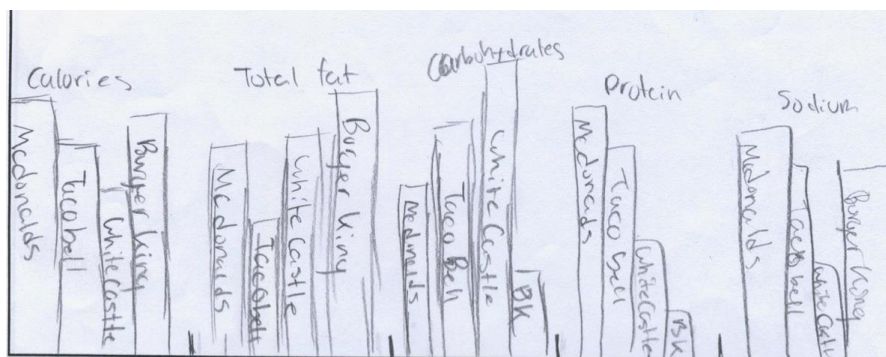 Calories
Mcdonalds
Tacobell
White Castle
Burger King
Total fat
Mcdonalds
Tacobell
White Castle
Burger King
Carbohydrates
Mcdonalds
Taco Bell
White Castle
BK
Protein
Mcdonalds
Taco bell
White Castle
BK
Sodium
Mcdonalds
Taco bell
White Castle
Burger King